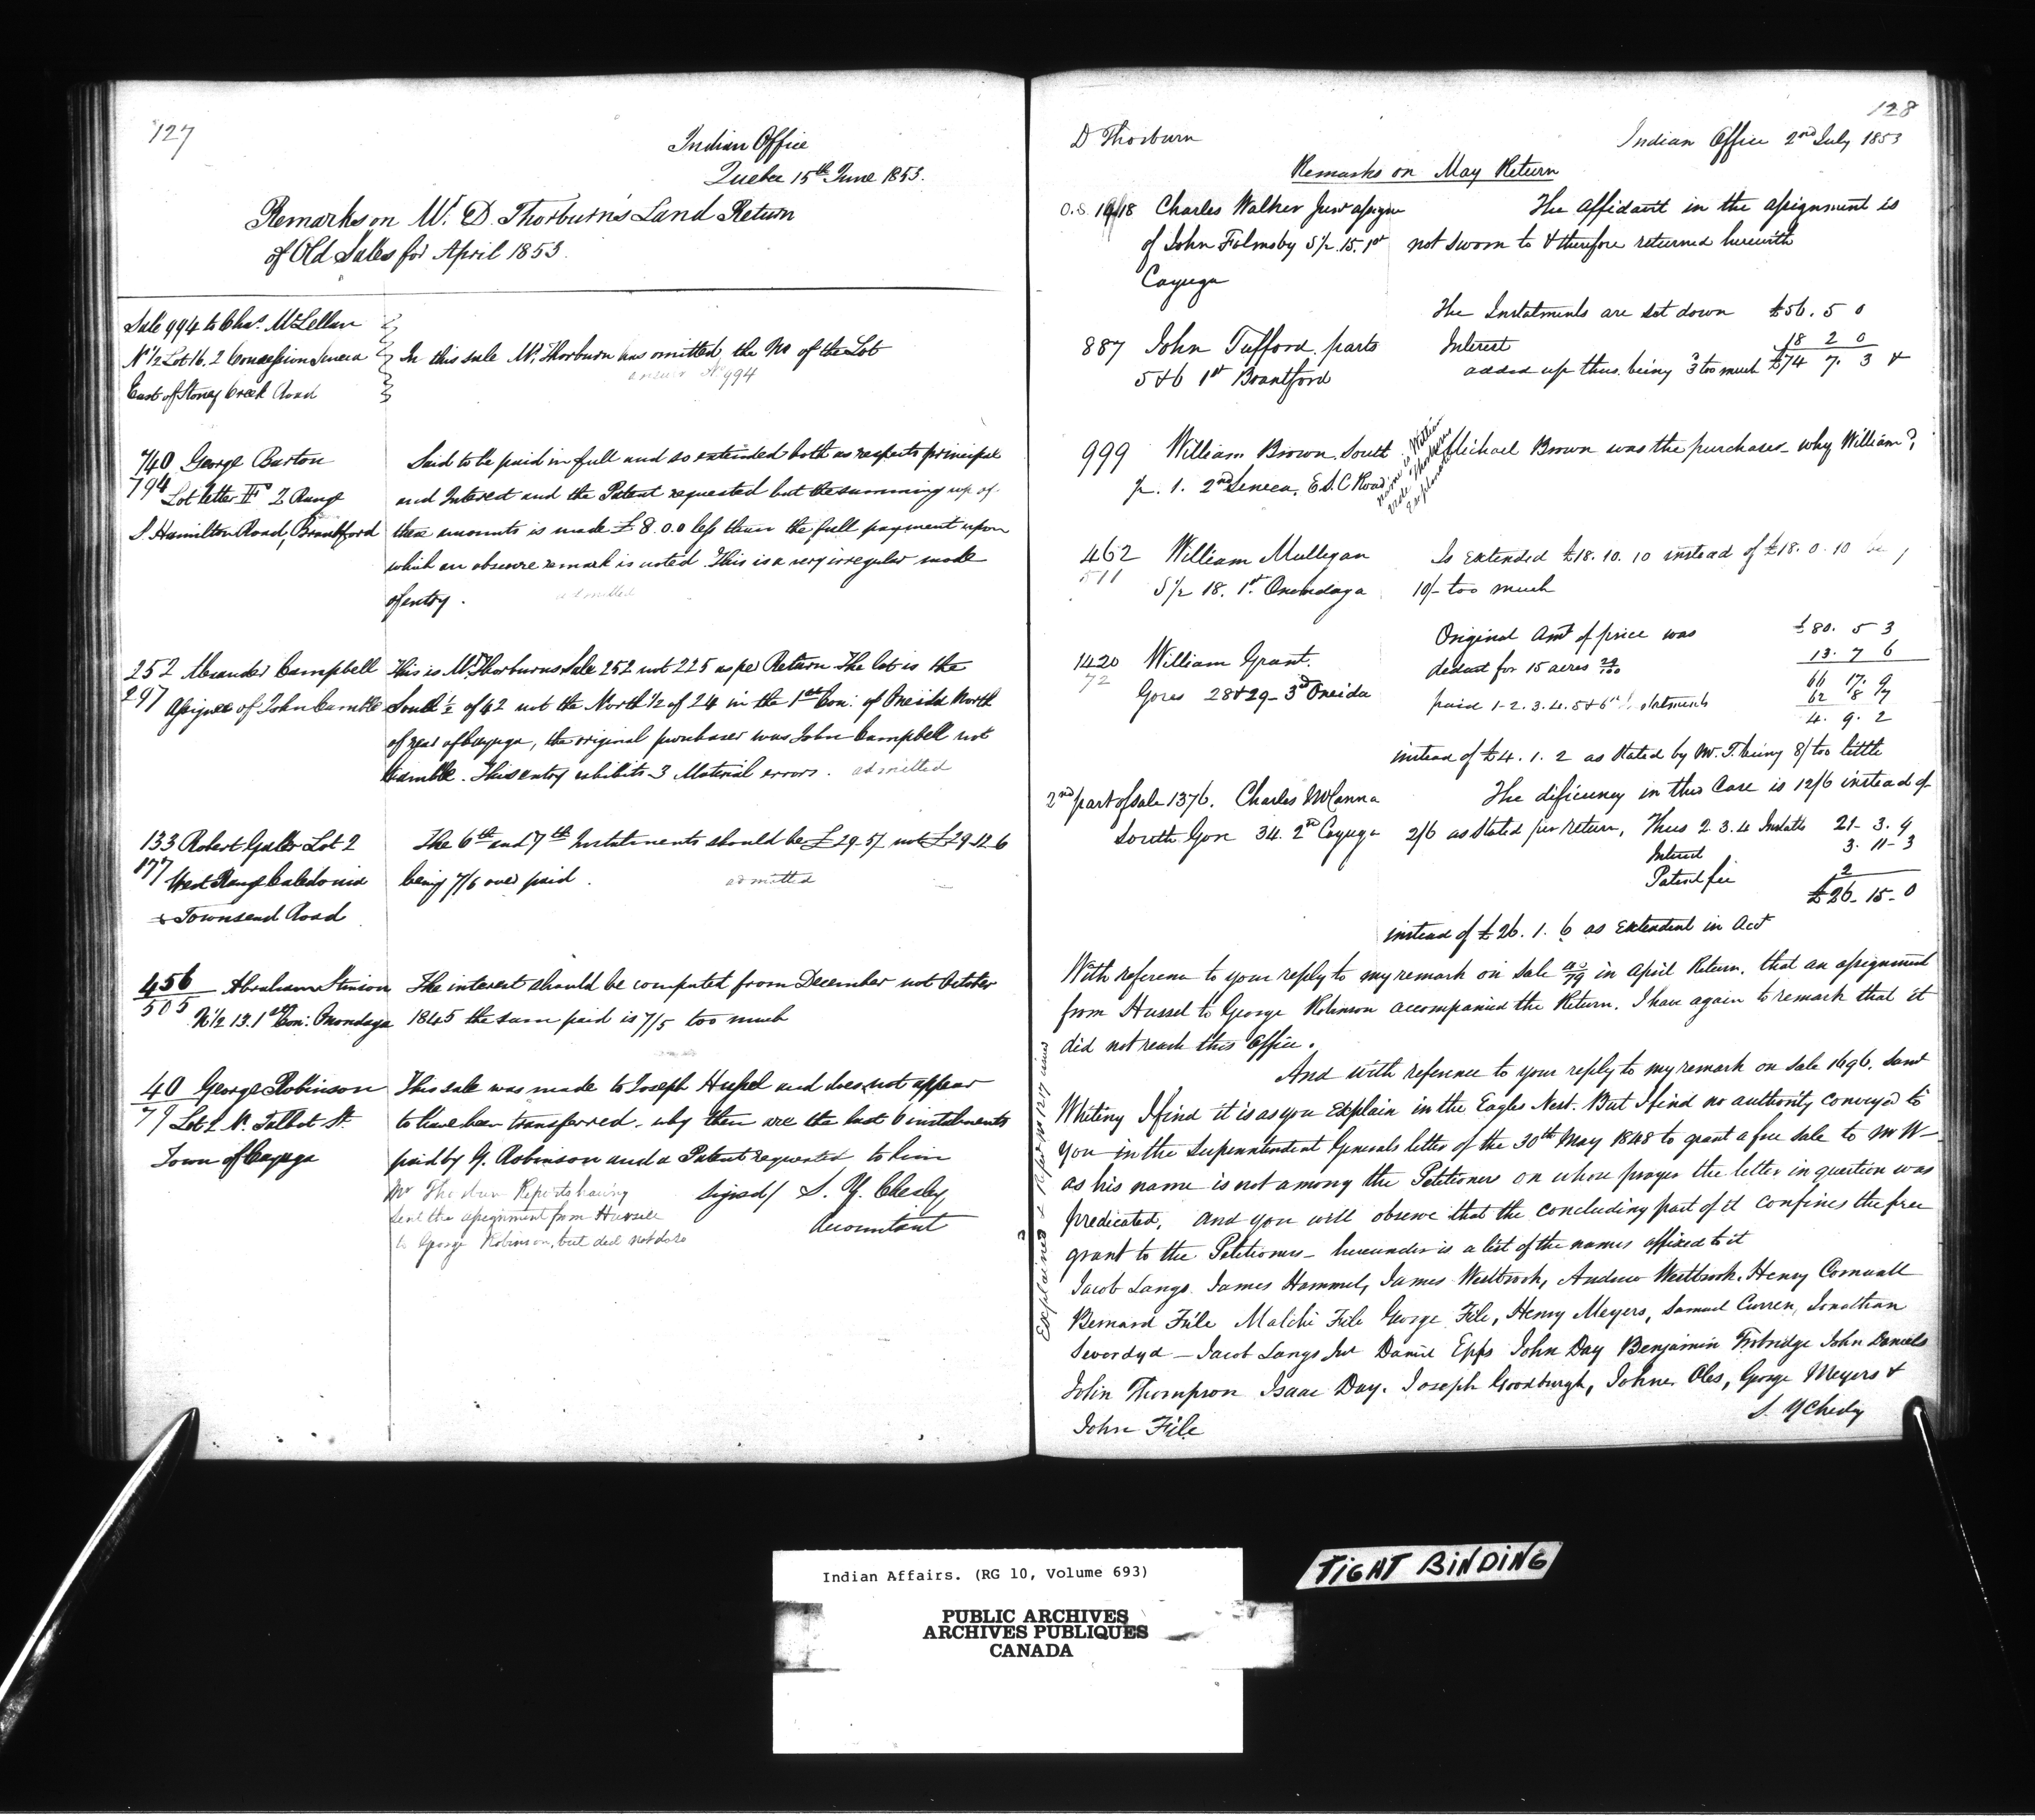 127
Indian Office
Quebec 15th June 1853.
Remarks on Mr. D. Thorburn's Land Return
of Old Sales for April 1853.
Sale 994 to Chas. McLellan
N 1/2 Lot 16. 2 Concession Seneca
East of Stoney Creek Road
In this sale Mr. Thorburn has omitted the No of the Lot
answer No 994
740 George Barton
794 Lot letter F 2 Range
S. Hamilton Road, Brantford
Said to be paid in full and so extended both as respects principal
and Interest and the Patent requested but the summing up of
these amounts is made £8.0.0 less than the full payment upon
which an obscure remark is noted. This is a very irregular mode
of entry.
admitted
252 Alexander Campbell
297 Assignee of John Camble
This is Mr. Thorburns Sale 252 not 225 as per Return The lot is the
South 1/2 of 42 not the North 1/2 of 24 in the 1st Con: of Oneida North
of rear of Cayuga, the original purchaser was John Campbell not
Camble. This entry exhibits 3 Material errors. admitted
133 Robert Galter Lot 2
177 West Range Caledonia
& Townsend Road
The 6th and 7th Instalments should be £29-5/ not £29-12-6
being 7/6 over paid.
admitted
456 Abraham Stinson
505 N 1/2 13. 1st Con: Onondaga
The interest should be computed from December not October
1845 the sum paid is 7/5 too much
40 George Robinson
79 Lot 2 N. Talbot St.
Town of Cayuga
This sale was made to Joseph Hussel and does not appear
to have been transferred, why then are the last 6 instalments
paid by G. Robinson and a Patent requested to him
Mr Thorburn Reports having
sent the assignment from Hussell
to George Robinson, but did not do so
Signed/ S. Y. Chesley
Accountant
128
D Thorburn
Indian Office 2nd July 1853
Remarks on May Return
O.S. 1418 Charles Walker Junr assignee
of John Fulmsby S 1/2. 15. 1st
Cayuga
The affidavit in the assignment is
not sworn to & therefore returned herewith
887 John Tufford parts
5 & 6 1st Brantford
The Instalments are set down £56. 5 0
Interest 18 2 0
added up thus being 3 too much £74 7. 3 &
999 William Brown South
1/2. 1. 2nd Seneca, E S. C Road
name is William
vide Thorburns
Explanation
Michael Brown was the purchaser why William?
462 William Mulligan
511
S 1/2 18. 1st Onondaga
Is Extended £18. 10. 10 instead of £18. 0. 10
10/- too much
1420 William Grant.
72
Gores 28 & 29 - 3rd Oneida
Original Amt of price was £80. 5 3
deduct for 15 acres 13. 7 6
66 17. 9
paid 1-2.3.4.5 & 6th Instalments 62 8 7
4. 9. 2
instead of £4. 1. 2 as stated by Mr. T. being 8/ too little
2nd part of sale 1376. Charles McCanna
South Gore 34. 2nd Cayuga
The dificiency in this Case is 12/6 instead of
2/6 as Stated per return, Thus 2 3.4 Instalts 21- 3. 9
Interest 3. 11- 3
Patent fee 2
£26- 15- 0
instead of £26. 1. 6 as Extended in Act
With reference to your reply to my remark on Sale 40/79 in April Return, that an assignment
from Hussel to George Robinson accompanied the Return. I have again to remark that it
did not reach this Office.
And with reference to your reply to my remark on Sale 1696. Saml
Whiting I find it is as you Explain in the Eagles Nest. But I find no authority conveyed to
you in the Superintendent Generals letter of the 30th May 1848 to grant a free sale to Mr W-
as his name is not among the Petitioners on whose prayer the letter in question was
predicated, and you will observe that the concluding part of it confines the free
grant to the Petitioners - hereunder is a list of the names affixed to it
Jacob Langs James Hammel, James Westbrook, Andrew Westbrook, Henry Cornwall
Bernard File Malchi File George File, Henry Meyers, Samuel Curren, Jonathan
Swordyd - Jacob Langs Junr Daniel Epps John Day Benjamin Frobridge John Daniels
John Thompson Isaac Day. Joseph Goodburgh, Johner Oles, George Meyers &
John File
S. Y Chesley
Indian Affairs. (RG 10, Volume 693)
PUBLIC ARCHIVES
ARCHIVES PUBLIQUES
CANADA
TIGHT BINDING